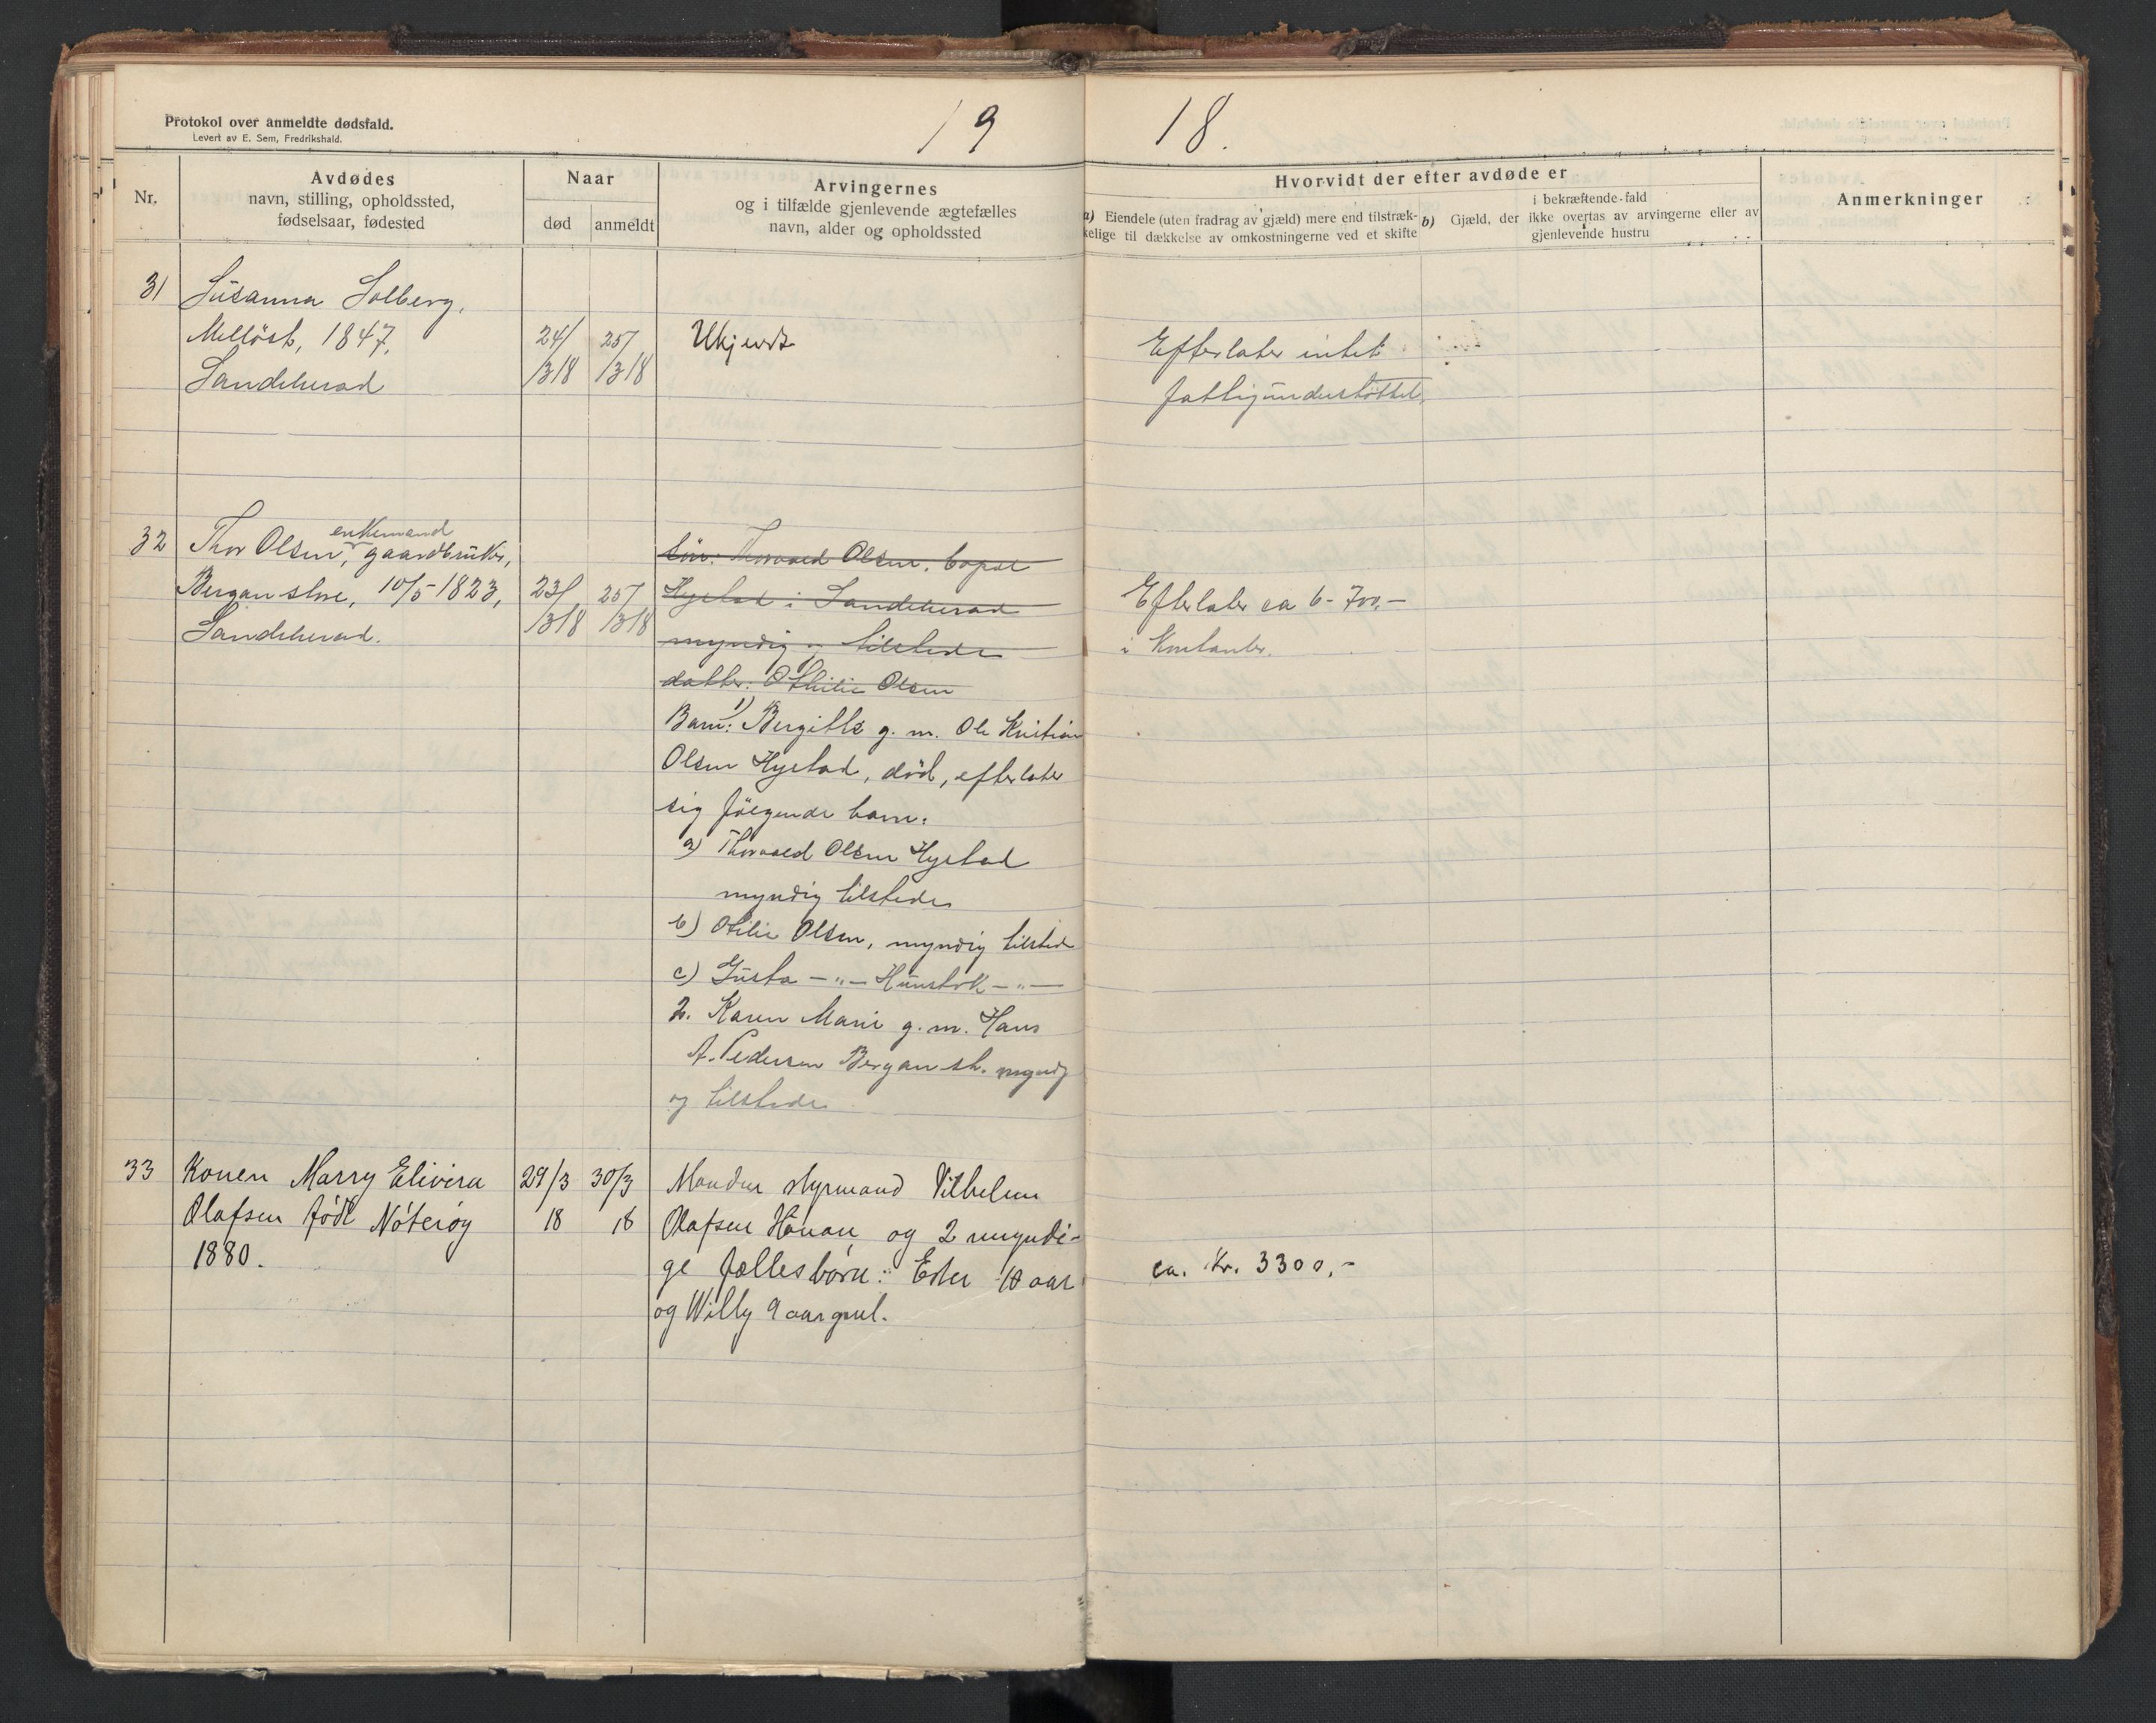 Protokol over anmeldte dødsfald.
Levert av E. Sem, Fredrikshald.
19 18.
Nr.
Avdødes
navn, stilling, opholdssted,
fødselsaar, fødested
Naar
død
anmeldt
Arvingernes
og i tilfælde gjenlevende ægtefælles
navn, alder og opholdssted
Hvorvidt der efter avdøde er
a) Eiendele (uten fradrag av gjæld) mere end tilstræk-
kelige til dækkelse av omkostningerne ved et skifte
b) Gjæld, der
i bekræftende fald
ikke overtas av arvingerne eller av
gjenlevende hustru
Anmerkninger
31 Susanna Solberg,
Melløst, 1847, 24/ 25/ Ukjendt Efterlater intet
Sandeherad /318 /318 fattigunderstøttet.
enkemand
32 Thor Olsen, gaardbruker, Søn: Thorvald Olsen, bopæl
Bergan store, 10/5-1823, 23/ 25/ Hystad i Sandeherad Efterlater ca 6-700,-
Sandeherad. /318 /318 myndig og tilstede i Kontanter.
datter: Othilie Olsen
Barn: 1) Bergitte g. m. Ole Kristian
Olsen Hystad, død, efterlater
sig følgende barn:
a) Thorvald Olsen Hystad
myndig tilstede
b) Otilie Olsen, myndig tilstede
c) Gusta -"- Hunstok -"-
2. Karen Marie g. m. Hans
A. Pedersen Bergan st. myndig
og tilstede
33 Konen Marry Elivira 29/3 30/3 Manden styrmand Vilhelm
Olafsen født Nøterøy 18 18 Olafsen Hauan og 2 umyndi-
1880. ge fællesbørn: Ester 10 aar ca. Kr. 3300,-
og Willy 9 aar gml.